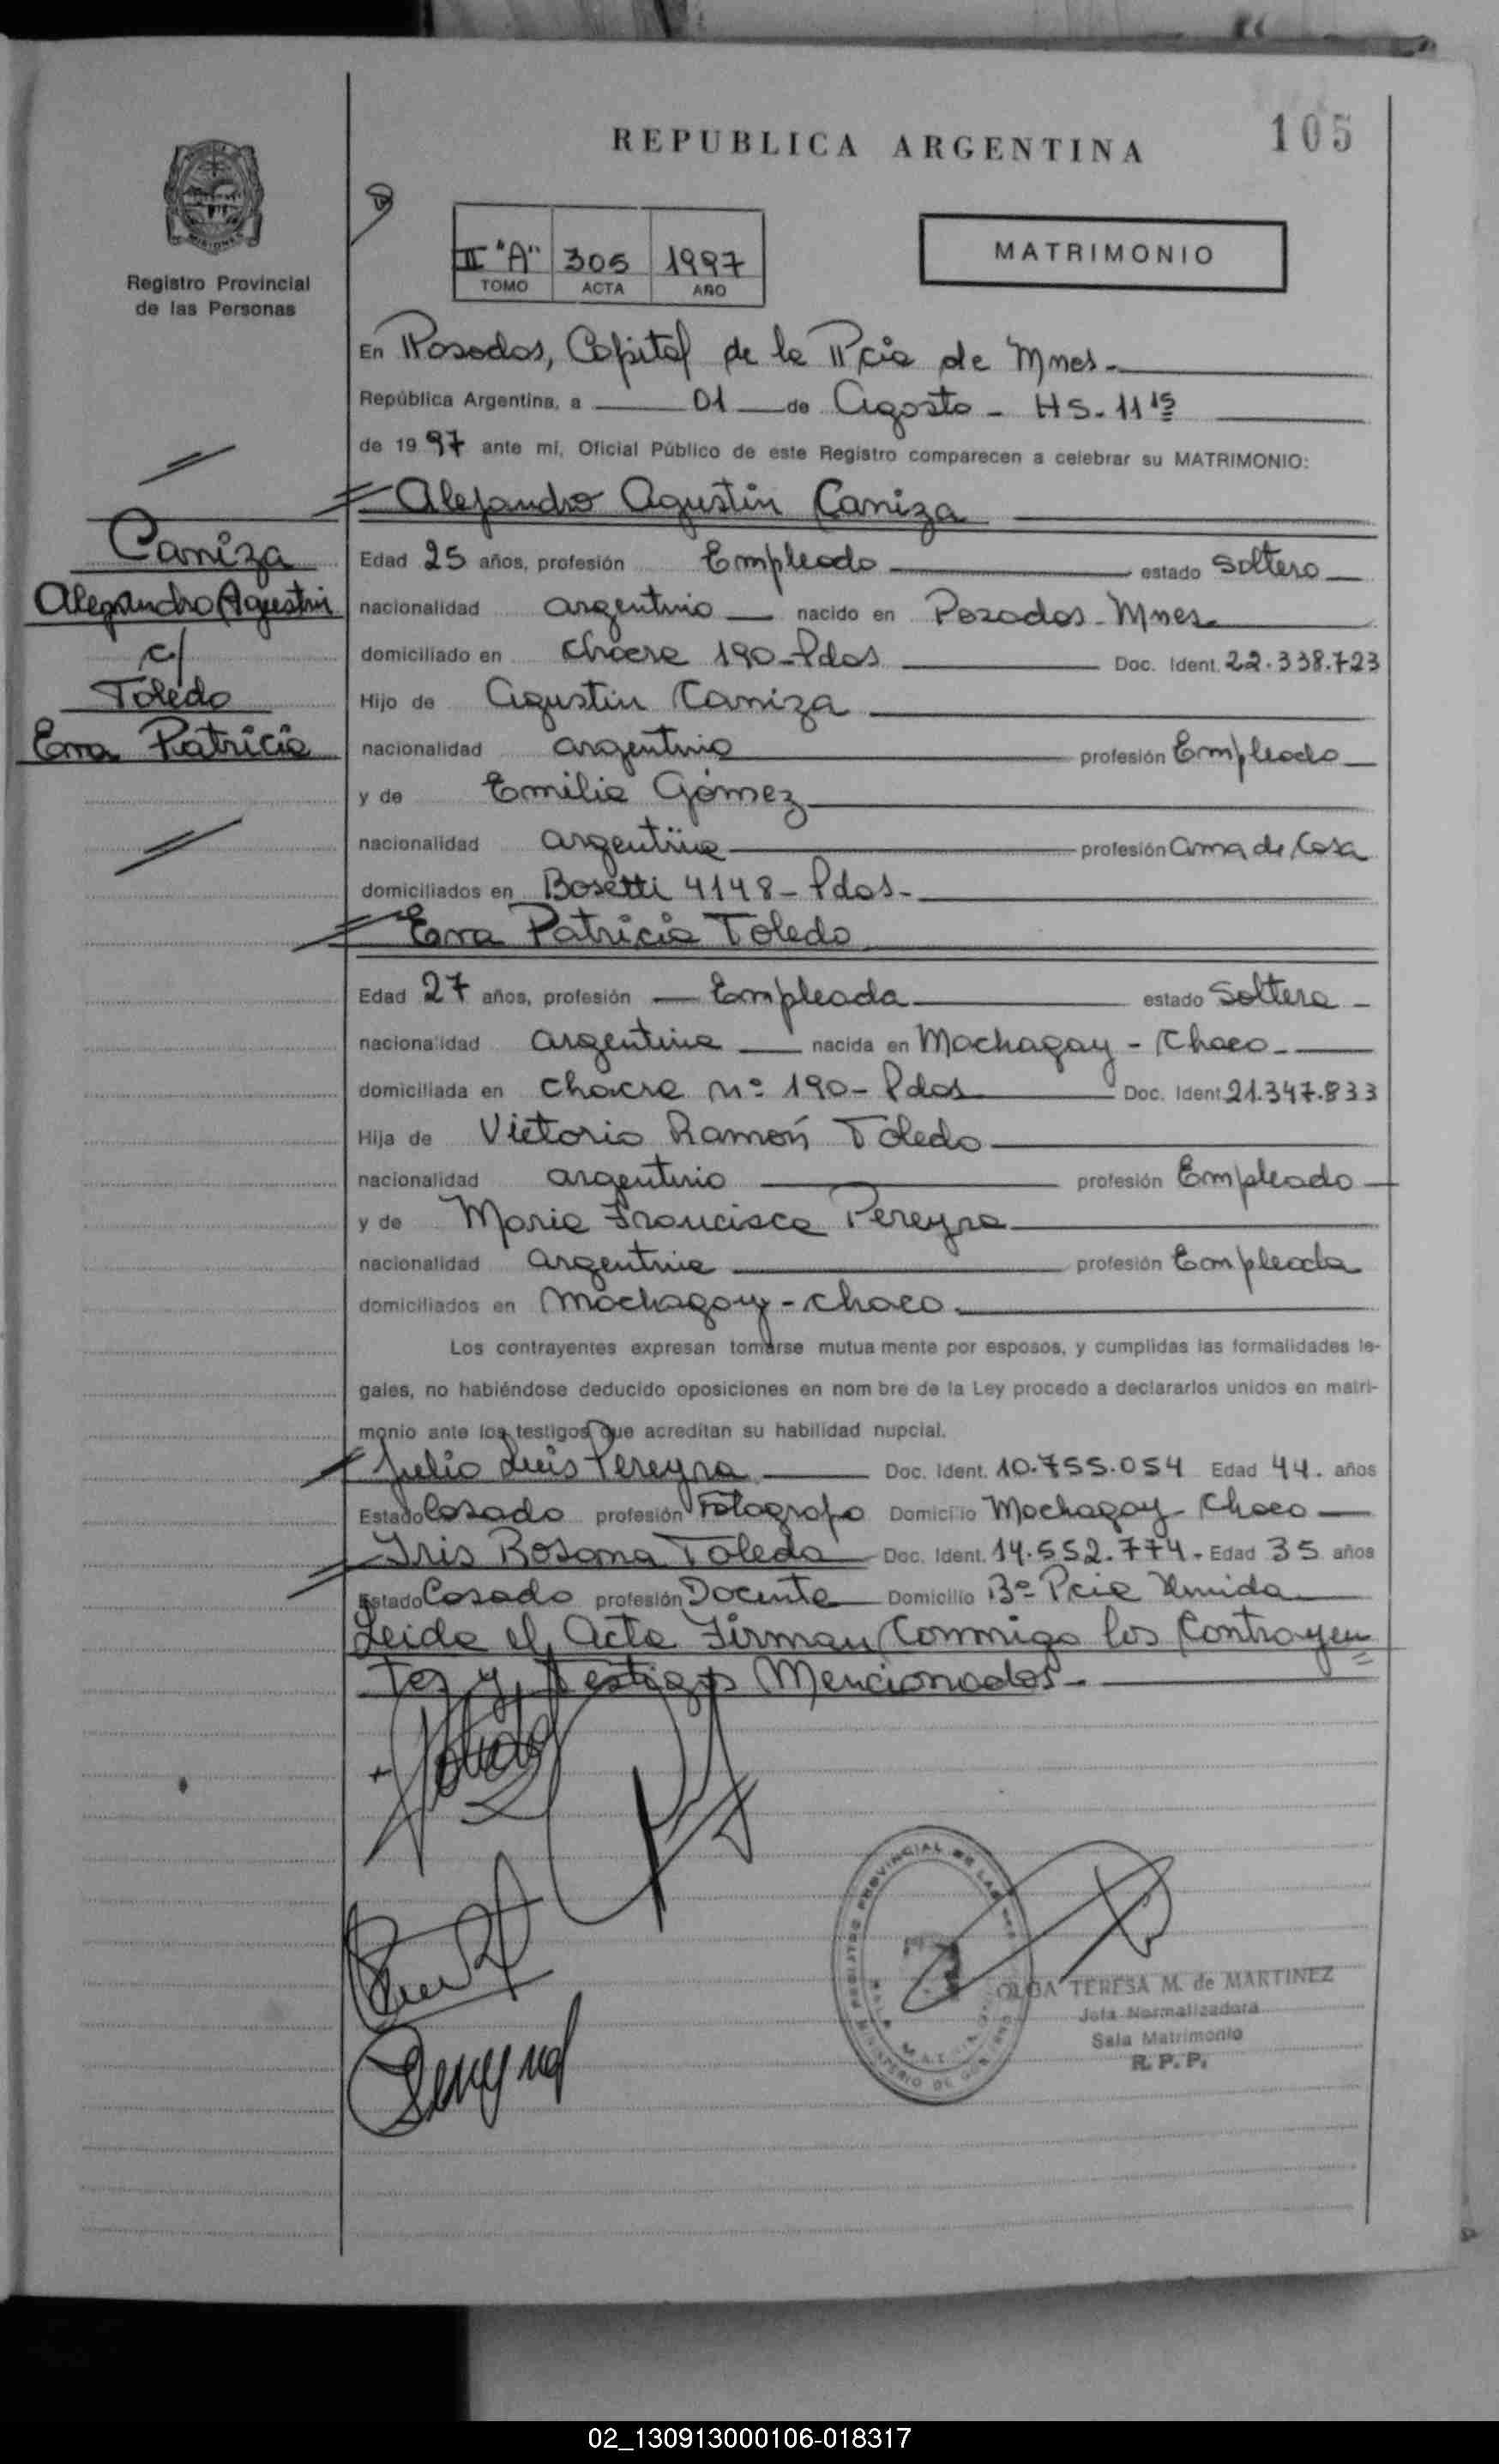 REPUBLICA ARGENTINA
105
MISIONES
Registro Provincial
de las Personas
II "A" 305 1997
TOMO ACTA AÑO
MATRIMONIO
En Posadas, Capital de la Pcia de Mnes.
República Argentina, a 01 de Agosto - HS. 11 15
de 1997 ante mí, Oficial Público de este Registro comparecen a celebrar su MATRIMONIO:
Alejandro Agustin Caniza
Caniza
Alejandro Agustin
c/
Toledo
Ema Patricia
Edad 25 años, profesión Empleado estado Soltero
nacionalidad argentino nacido en Posados - Mnes
domiciliado en chacra 190 - Pdas Doc. Ident. 22.338.723
Hijo de Agustin Caniza
nacionalidad argentino profesión Empleado
y de Emilia Gómez
nacionalidad argentina profesión ama de Casa
domiciliados en Bosetti 4148 - Pdas -
Ema Patricia Toledo
Edad 27 años, profesión Empleada estado Soltera
nacionalidad argentina nacida en Machagay - Chaco -
domiciliada en chacra nº 190 - Pdas Doc. Ident. 21.347.833
Hija de Victorio Ramón Toledo
nacionalidad argentino profesión Empleado
y de Maria Francisca Pereyra
nacionalidad argentina profesión Empleada
domiciliados en Machagay - chaco.
Los contrayentes expresan tomarse mutua mente por esposos, y cumplidas las formalidades le-
gales, no habiéndose deducido oposiciones en nom bre de la Ley procedo a declararlos unidos en matri-
monio ante los testigos que acreditan su habilidad nupcial.
Julio Luis Pereyra Doc. Ident. 10.755.054 Edad 44. años
Estado Casado profesión Fotografo Domicilio Machagay - Chaco
Iris Rosana Toledo Doc. Ident. 14.552.774 - Edad 35 años
Estado Casado profesión Docente Domicilio Bº Pcia Unida
Leida el Acta Firman Conmigo los Contrayen
tes y Testigos Mencionados -
Toledo
Pereyra
REGISTRO PROVINCIAL DE LAS
MINISTERIO DE GOBIERNO
OLGA TERESA M. de MARTINEZ
Jefa Normalizadora
Sala Matrimonio
R. P. P.
02_130913000106-018317